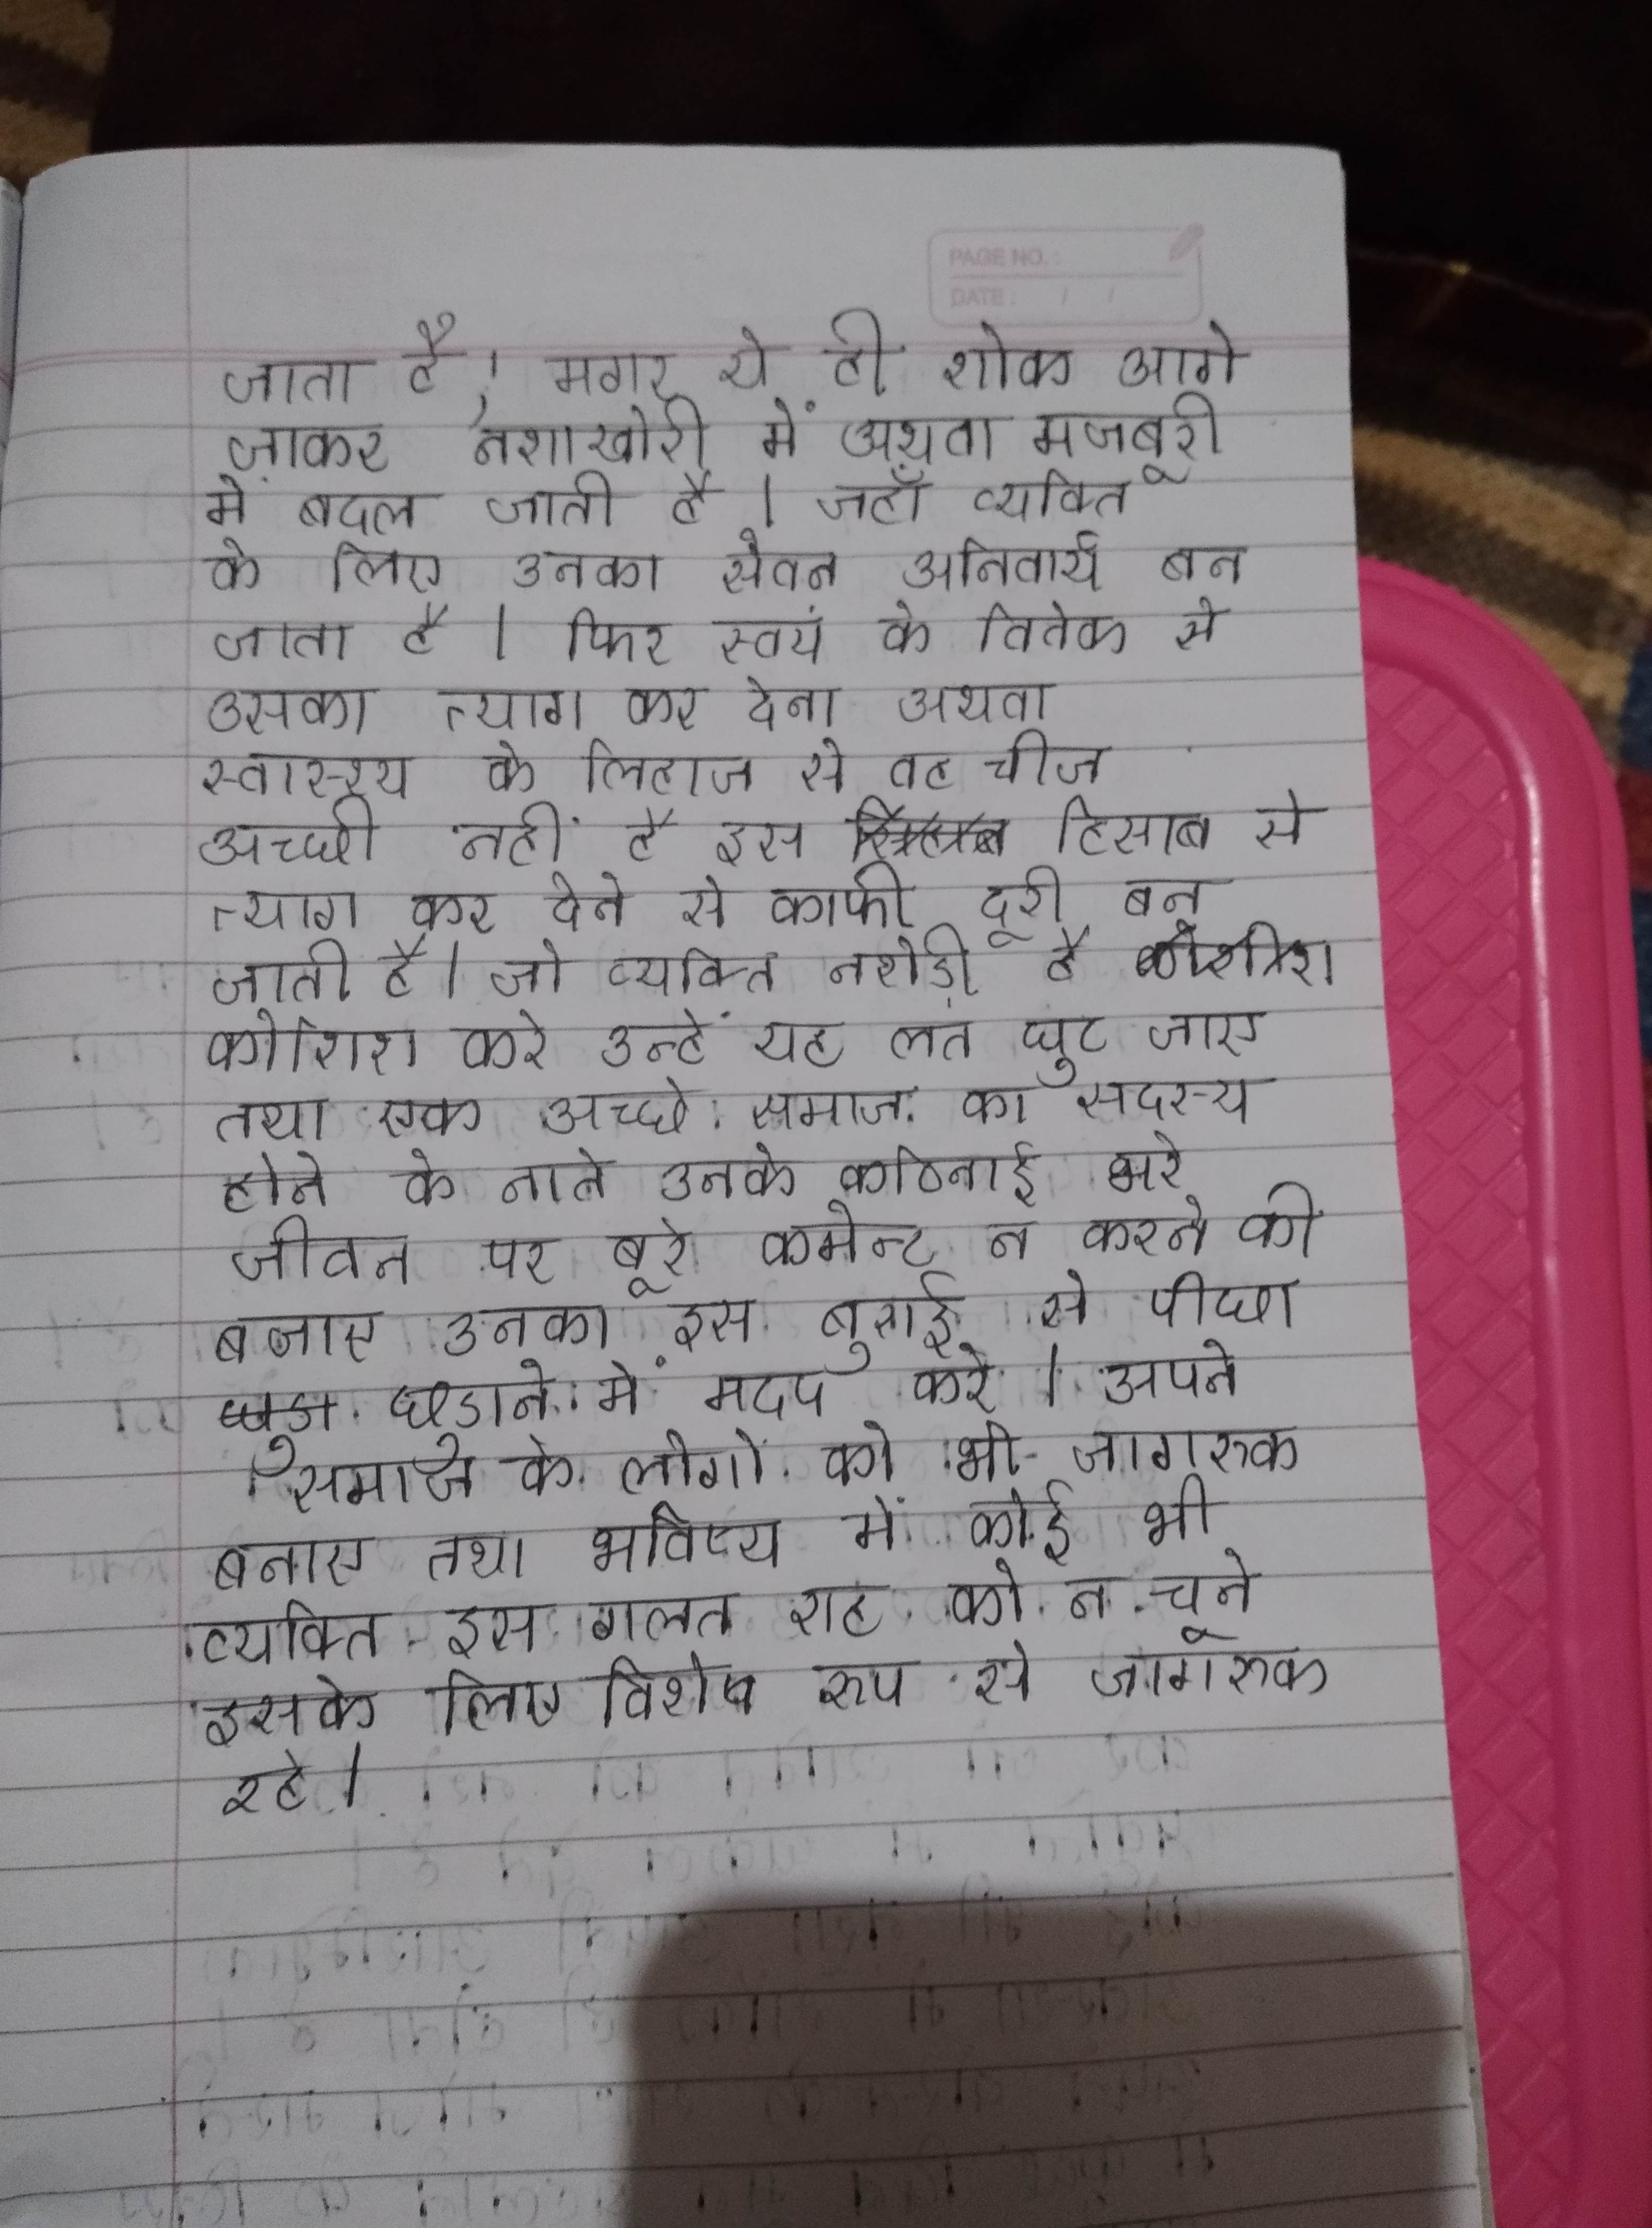 PAGE NO. :
DATE : / /
जाता है, मगर ये ही शोक आगे
जाकर नशाखोरी में अथवा मजबूरी
में बदल जाती है । जहाँ व्यक्ति
के लिए उनका सेवन अनिवार्य बन
जाता है । फिर स्वयं के विवेक से
उसका त्याग कर देना अथवा
स्वास्थ्य के लिहाज से वह चीज
अच्छी नहीं है इस हिसाब से
त्याग कर देने से काफी दूरी बन
जाती है । जो व्यक्ति नशेड़ी है
कोशिश करे उन्हें यह लत छुट जाए
तथा एक अच्छे समाज का सदस्य
होने के नाते उनके कठिनाई भरे
जीवन पर बूरे कमेन्ट न करने की
बजाए उनका इस बुराई से पीछा
छुडाने में मदद करे । अपने
समाज के लोगो को भी जागरुक
बनाए तथा भविष्य में कोई भी
व्यक्ति इस गलत राह को न चूने
इसके लिए विशेष रुप से जागरुक
रहे ।